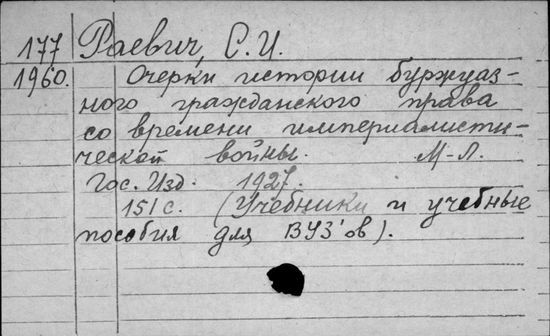 177 Раевич, С. И.
1960. Очерки истории буржуаз-
ного гражданского права
со времени империалисти-
ческой войны. М-Л.
Гос. Изд. 1927.
151 с. (Учебники и учебные
пособия для ВУЗ'ов).